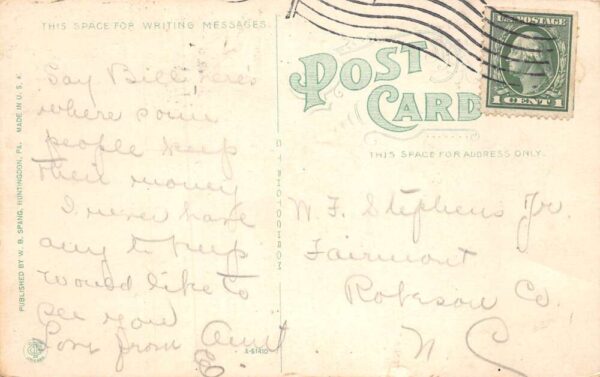 THIS SPACE FOR WRITING MESSAGES.
Say Bill here's
where som
people keep
their money
I never have
any to keep
would like to
see you
Love from Aunt
E
PUBLISHED BY W. B. SPANG, HUNTINGDON, PA. MADE IN U. S. A.
A-61410
POST CARD
THIS SPACE FOR ADDRESS ONLY.
U.S. POSTAGE
1 CENT 1
W. F. Stephens Jr.
Fairmont
Robeson Co.
N C